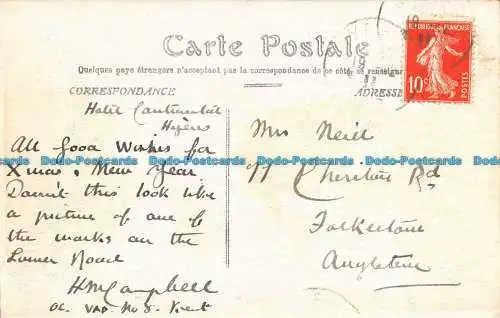 Carte Postale
Quelques pays étrangers n'acceptant pas la correspondance de ce côté, se renseigner
CORRESPONDANCE
ADRESSE
REPUBLIQUE FRANÇAISE
10c
POSTES
Hotel Continental
Hyères
All good wishes for
Xmas & New Year.
Doesn't this look like
a picture of one of
the marks on the
Lower Road
HM Campbell
OC. VAD. No 8. Kent
Mrs Neill
77 Cheriton Rd
Folkestone
Angleterre
Dodo-Postcards Dodo-Postcards Dodo-Postcards Dodo-Postcards Dodo-Postcards Dodo-Postcards